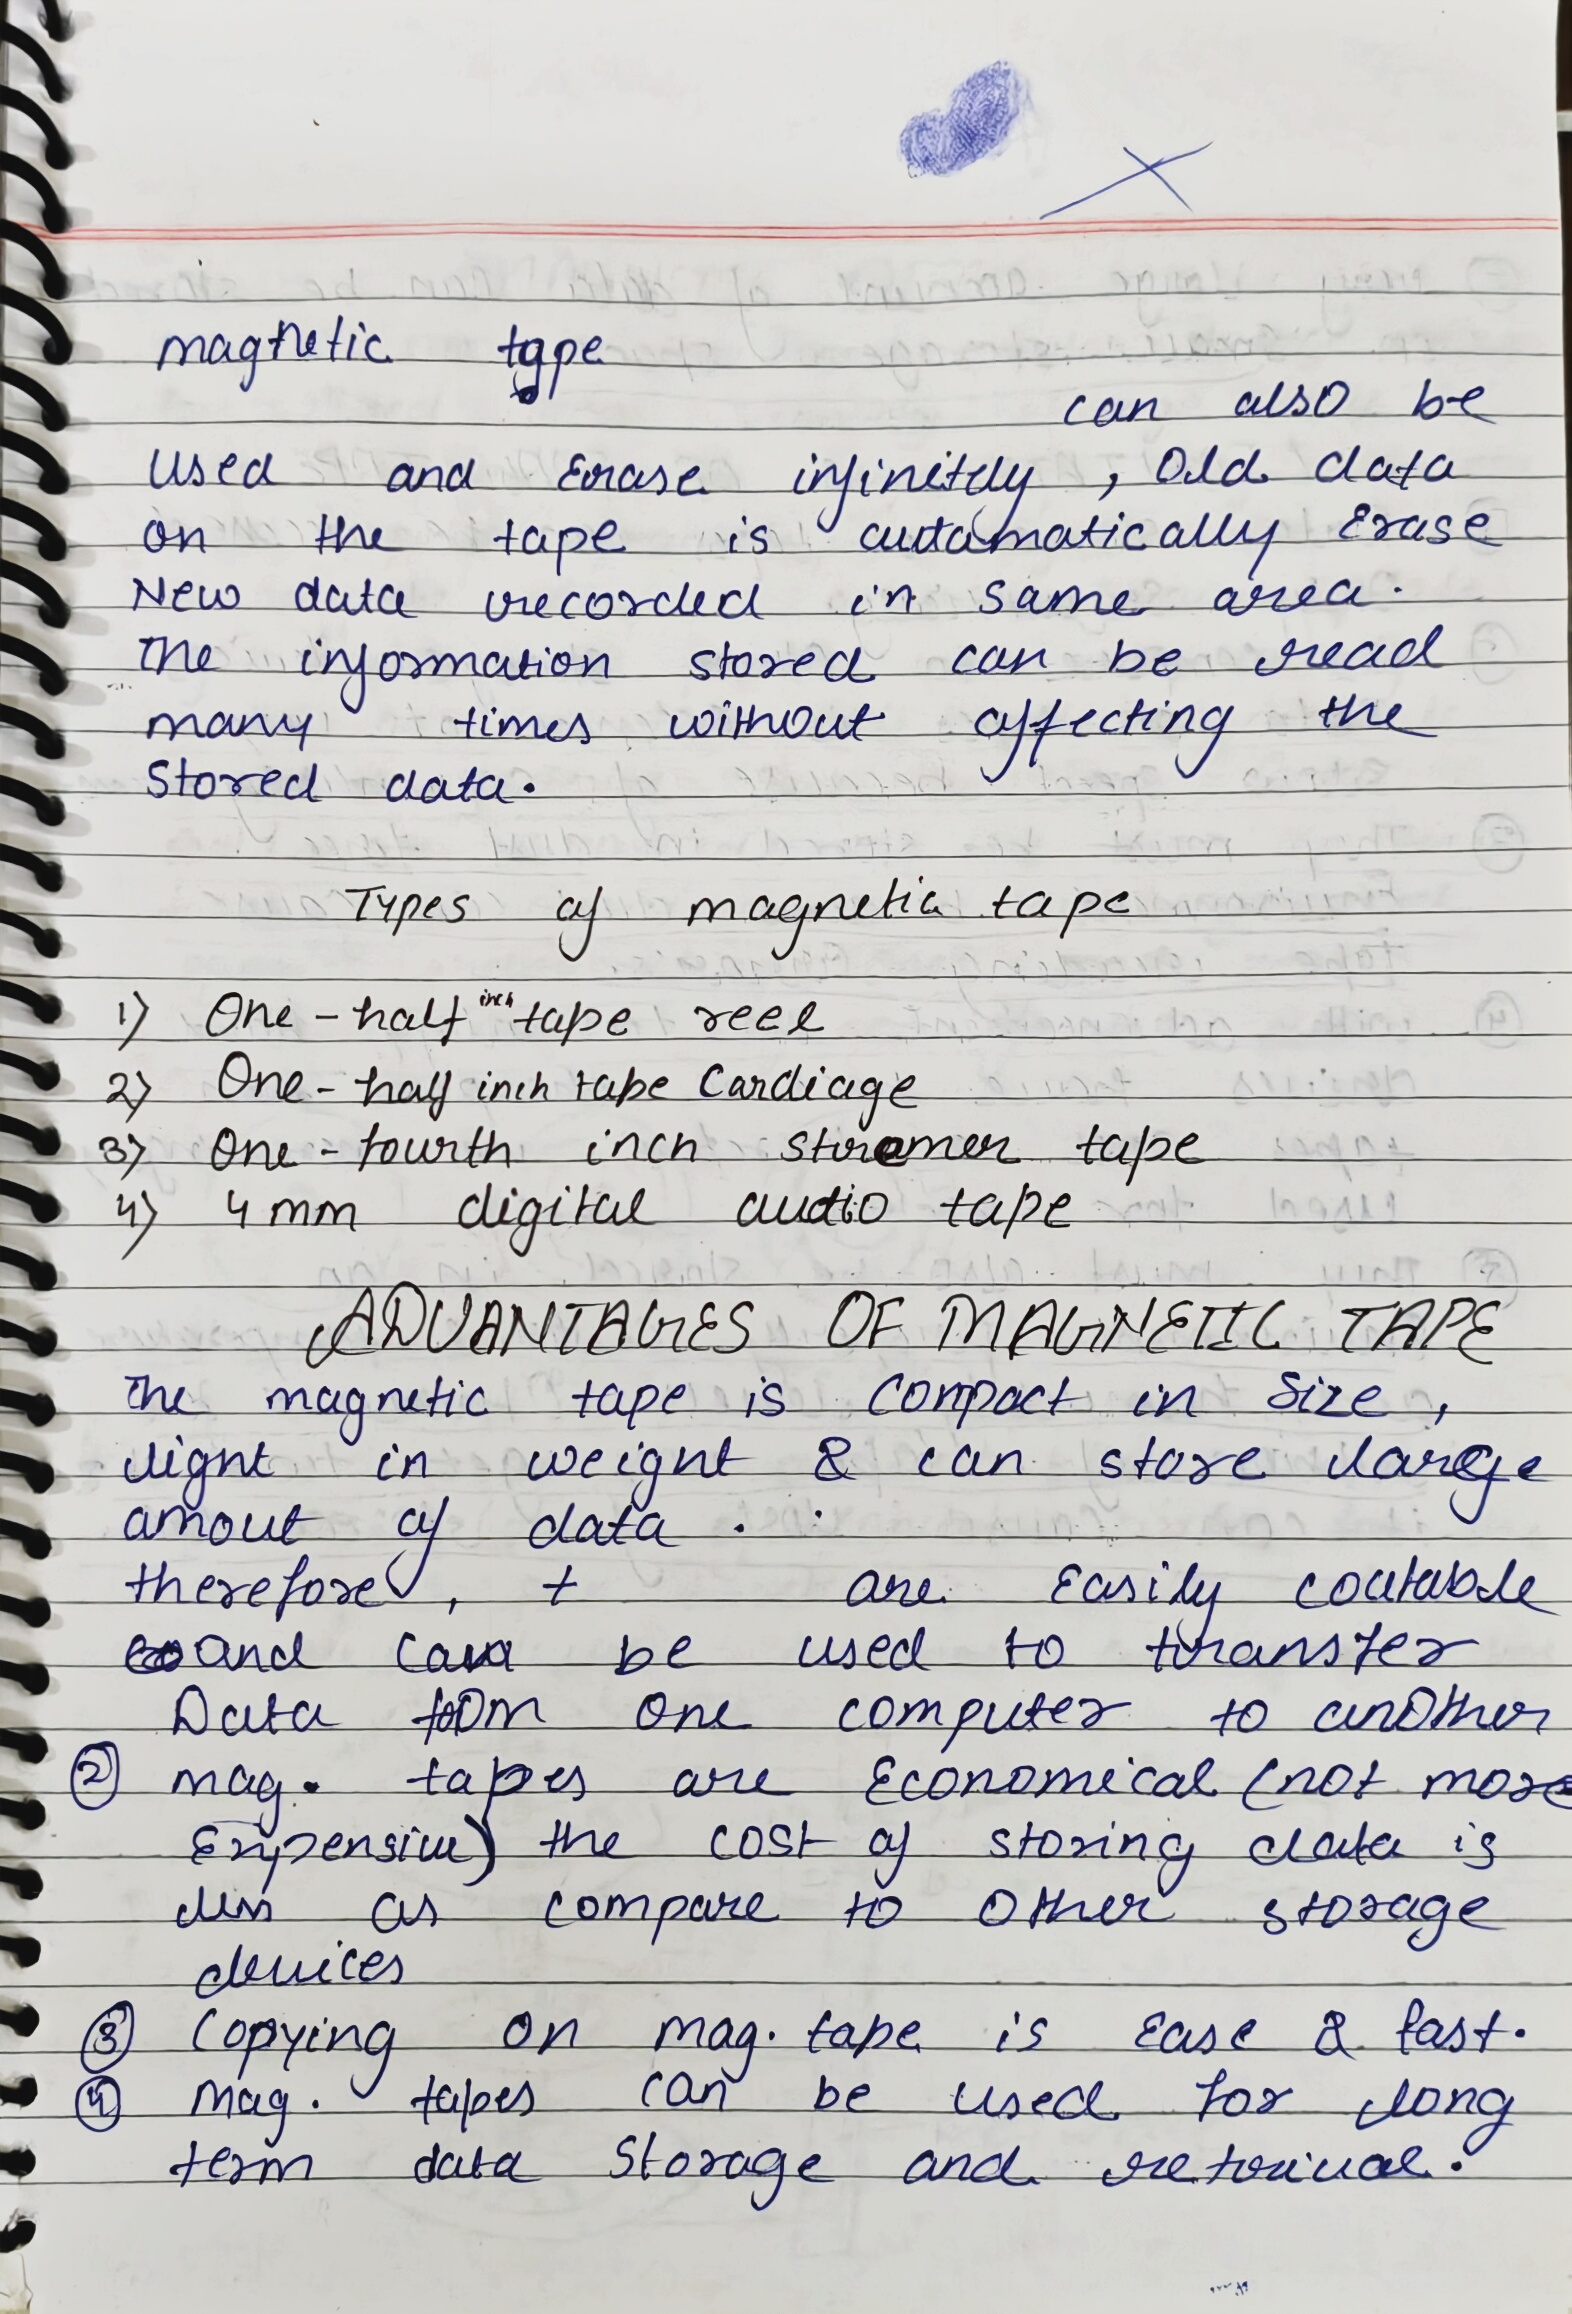 magnetic type
can also be
used and Erase infinitely, Old data
on the tape is automatically Erase
New data recorded in same area.
The information stored can be read
many times without affecting the
Stored data.
Types of magnetic tape
1) One-half inch tape reel
2) One-half inch tape Cardiage
3) One-fourth inch streamer tape
4) 4 mm digital audio tape
ADVANTAGES OF MAGNETIC TAPE
The magnetic tape is compact in size,
light in weight & can store large
amout of data.
therefore, t are Easily
and can be used to transfer
Data from one computer to another
② mag. tapes are Economical (not more
Expensive) the cost of storing data is
less as compare to other storage
devices
③ Copying on mag. tape is Ease & fast.
④ Mag. tapes can be used for long
term data Storage and retorival.